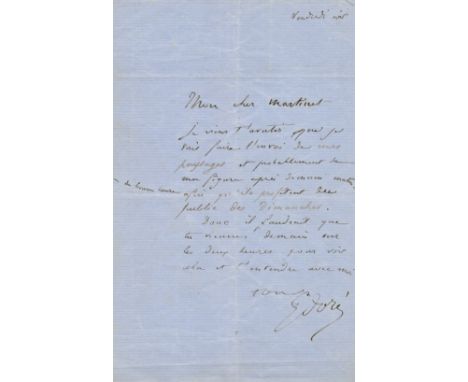 Vendredi soir
Mon cher Martinet
je viens t'avertir que je
vais faire l'envoi de mes
paysages et probablement de
ma figure après demain matin
de bonne heure
afin qu'ils profitent du
public des Dimanches.
Donc il faudrait que
tu viennes demain sur
les deux heures pour voir
cela et t'entendre avec moi
G Doré